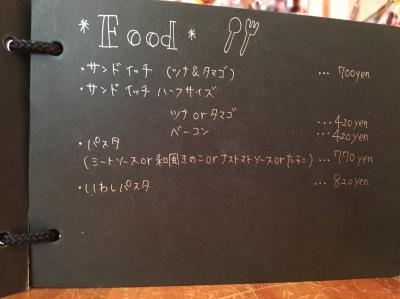 *Food*
・サンドイッチ (ツナ&タマゴ) ... 700yen
・サンドイッチ ハーフサイズ
ツナ or タマゴ ... 420yen
ベーコン ... 420yen
・パスタ
(ミートソース or 和風きのこ or ナストマトソース or たらこ) ... 770yen
・いわしパスタ ... 820yen